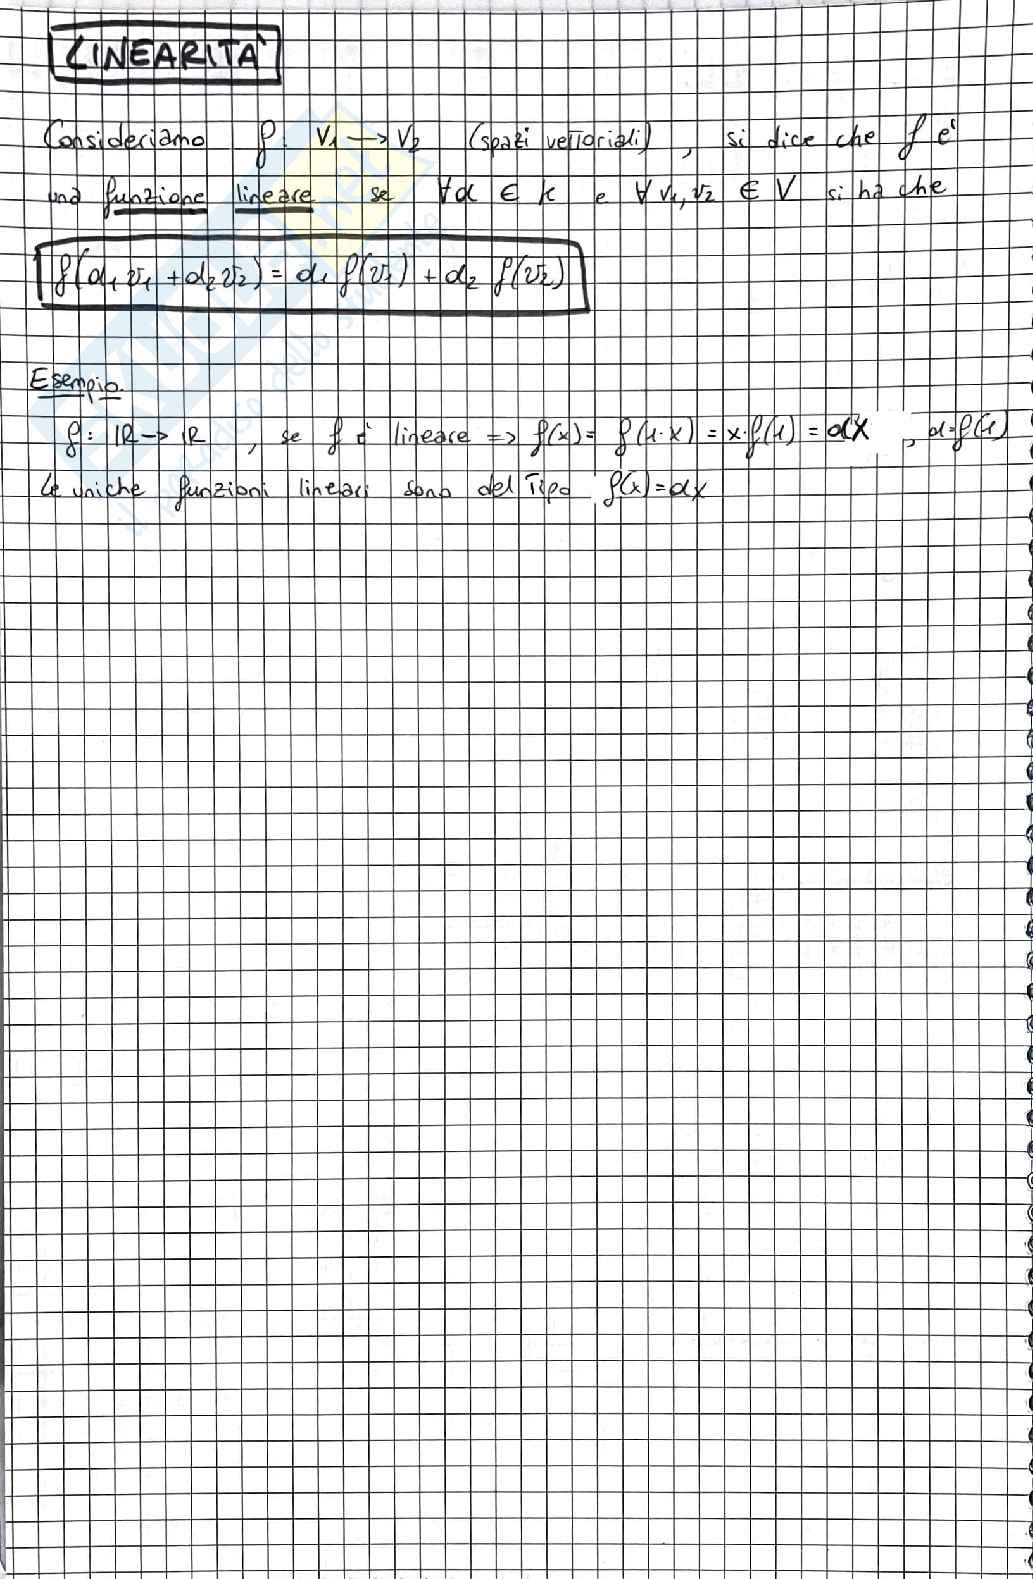 LINEARITÀ
Consideriamo f: V₁ → V₂ (spazi vettoriali), si dice che f è
una funzione lineare se ∀α ∈ K e ∀ v₁, v₂ ∈ V si ha che
f(α₁ v₁ + α₂ v₂) = α₁ f(v₁) + α₂ f(v₂)
Esempio
f: ℝ → ℝ, se f è lineare => f(x) = f(1·x) = x·f(1) = αx, α=f(1)
Le uniche funzioni lineari sono del Tipo f(x) = αx